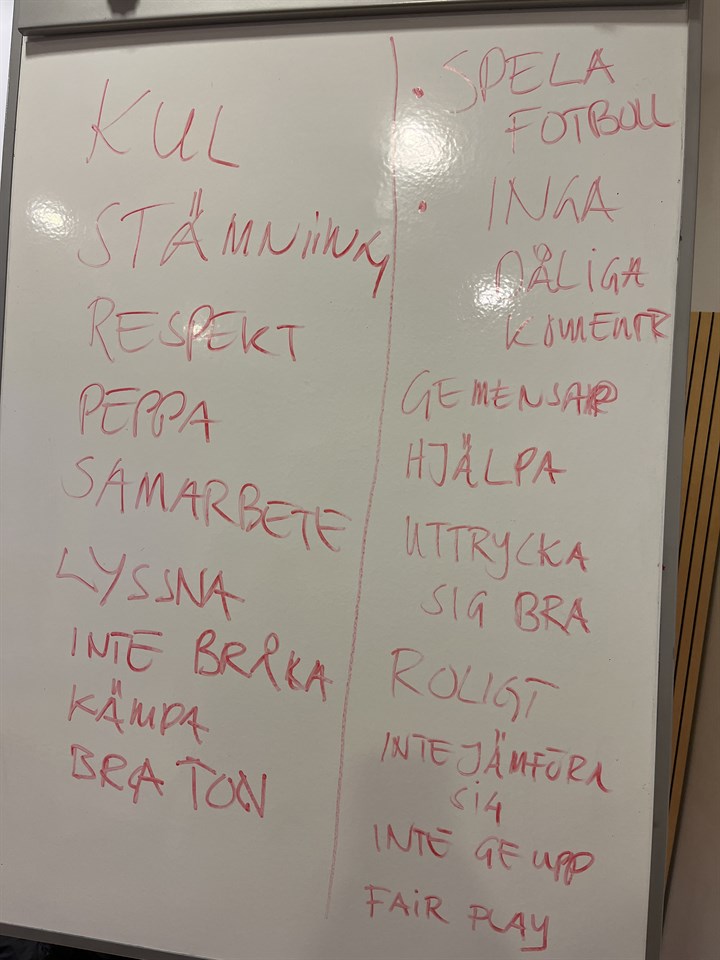 KUL
STÄMNiiNG
RESPEKT
PEPPA
SAMARBETE
LYSSNA
INTE BRÅKA
KÄMPA
BRA TON
• SPELA
FOTBOLL
• INGA
DÅLIGA
KOMENTR
GEMENSAP
HJÄLPA
UTTRYCKA
SIG BRA
ROLIGT
INTE JÄMFÖRA
SIG
INTE GE UPP
FAIR PLAY